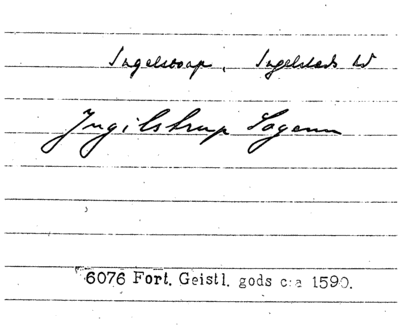 Ingelstorp, Ingelstads hd
Jngilstrup Sogenn
6076 Fort. Geistl. gods c:a 1590.